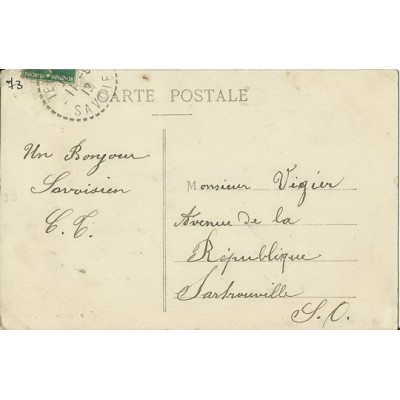 73
SAVOIE
CARTE POSTALE
Un Bonjour
Savoisien
C. C.
Monsieur Vigier
Avenue de la
République
Sartrouville
S. O.